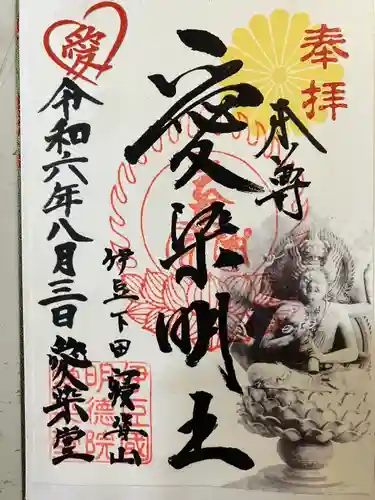 奉拝
本尊
愛染明王
伊豆下田
令和六年八月三日
愛染堂
愛